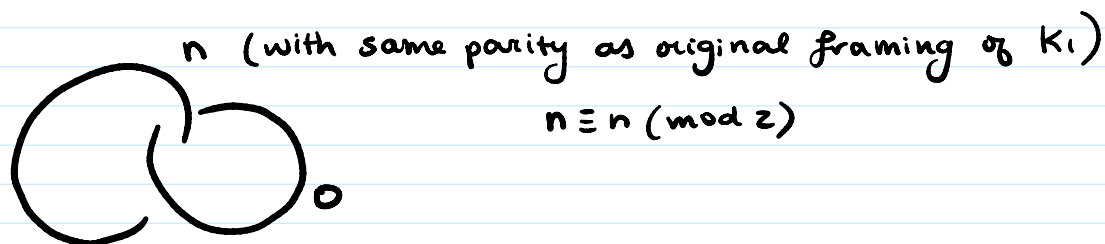 n (with same parity as original framing of K₁)
n ≡ n (mod 2)
0